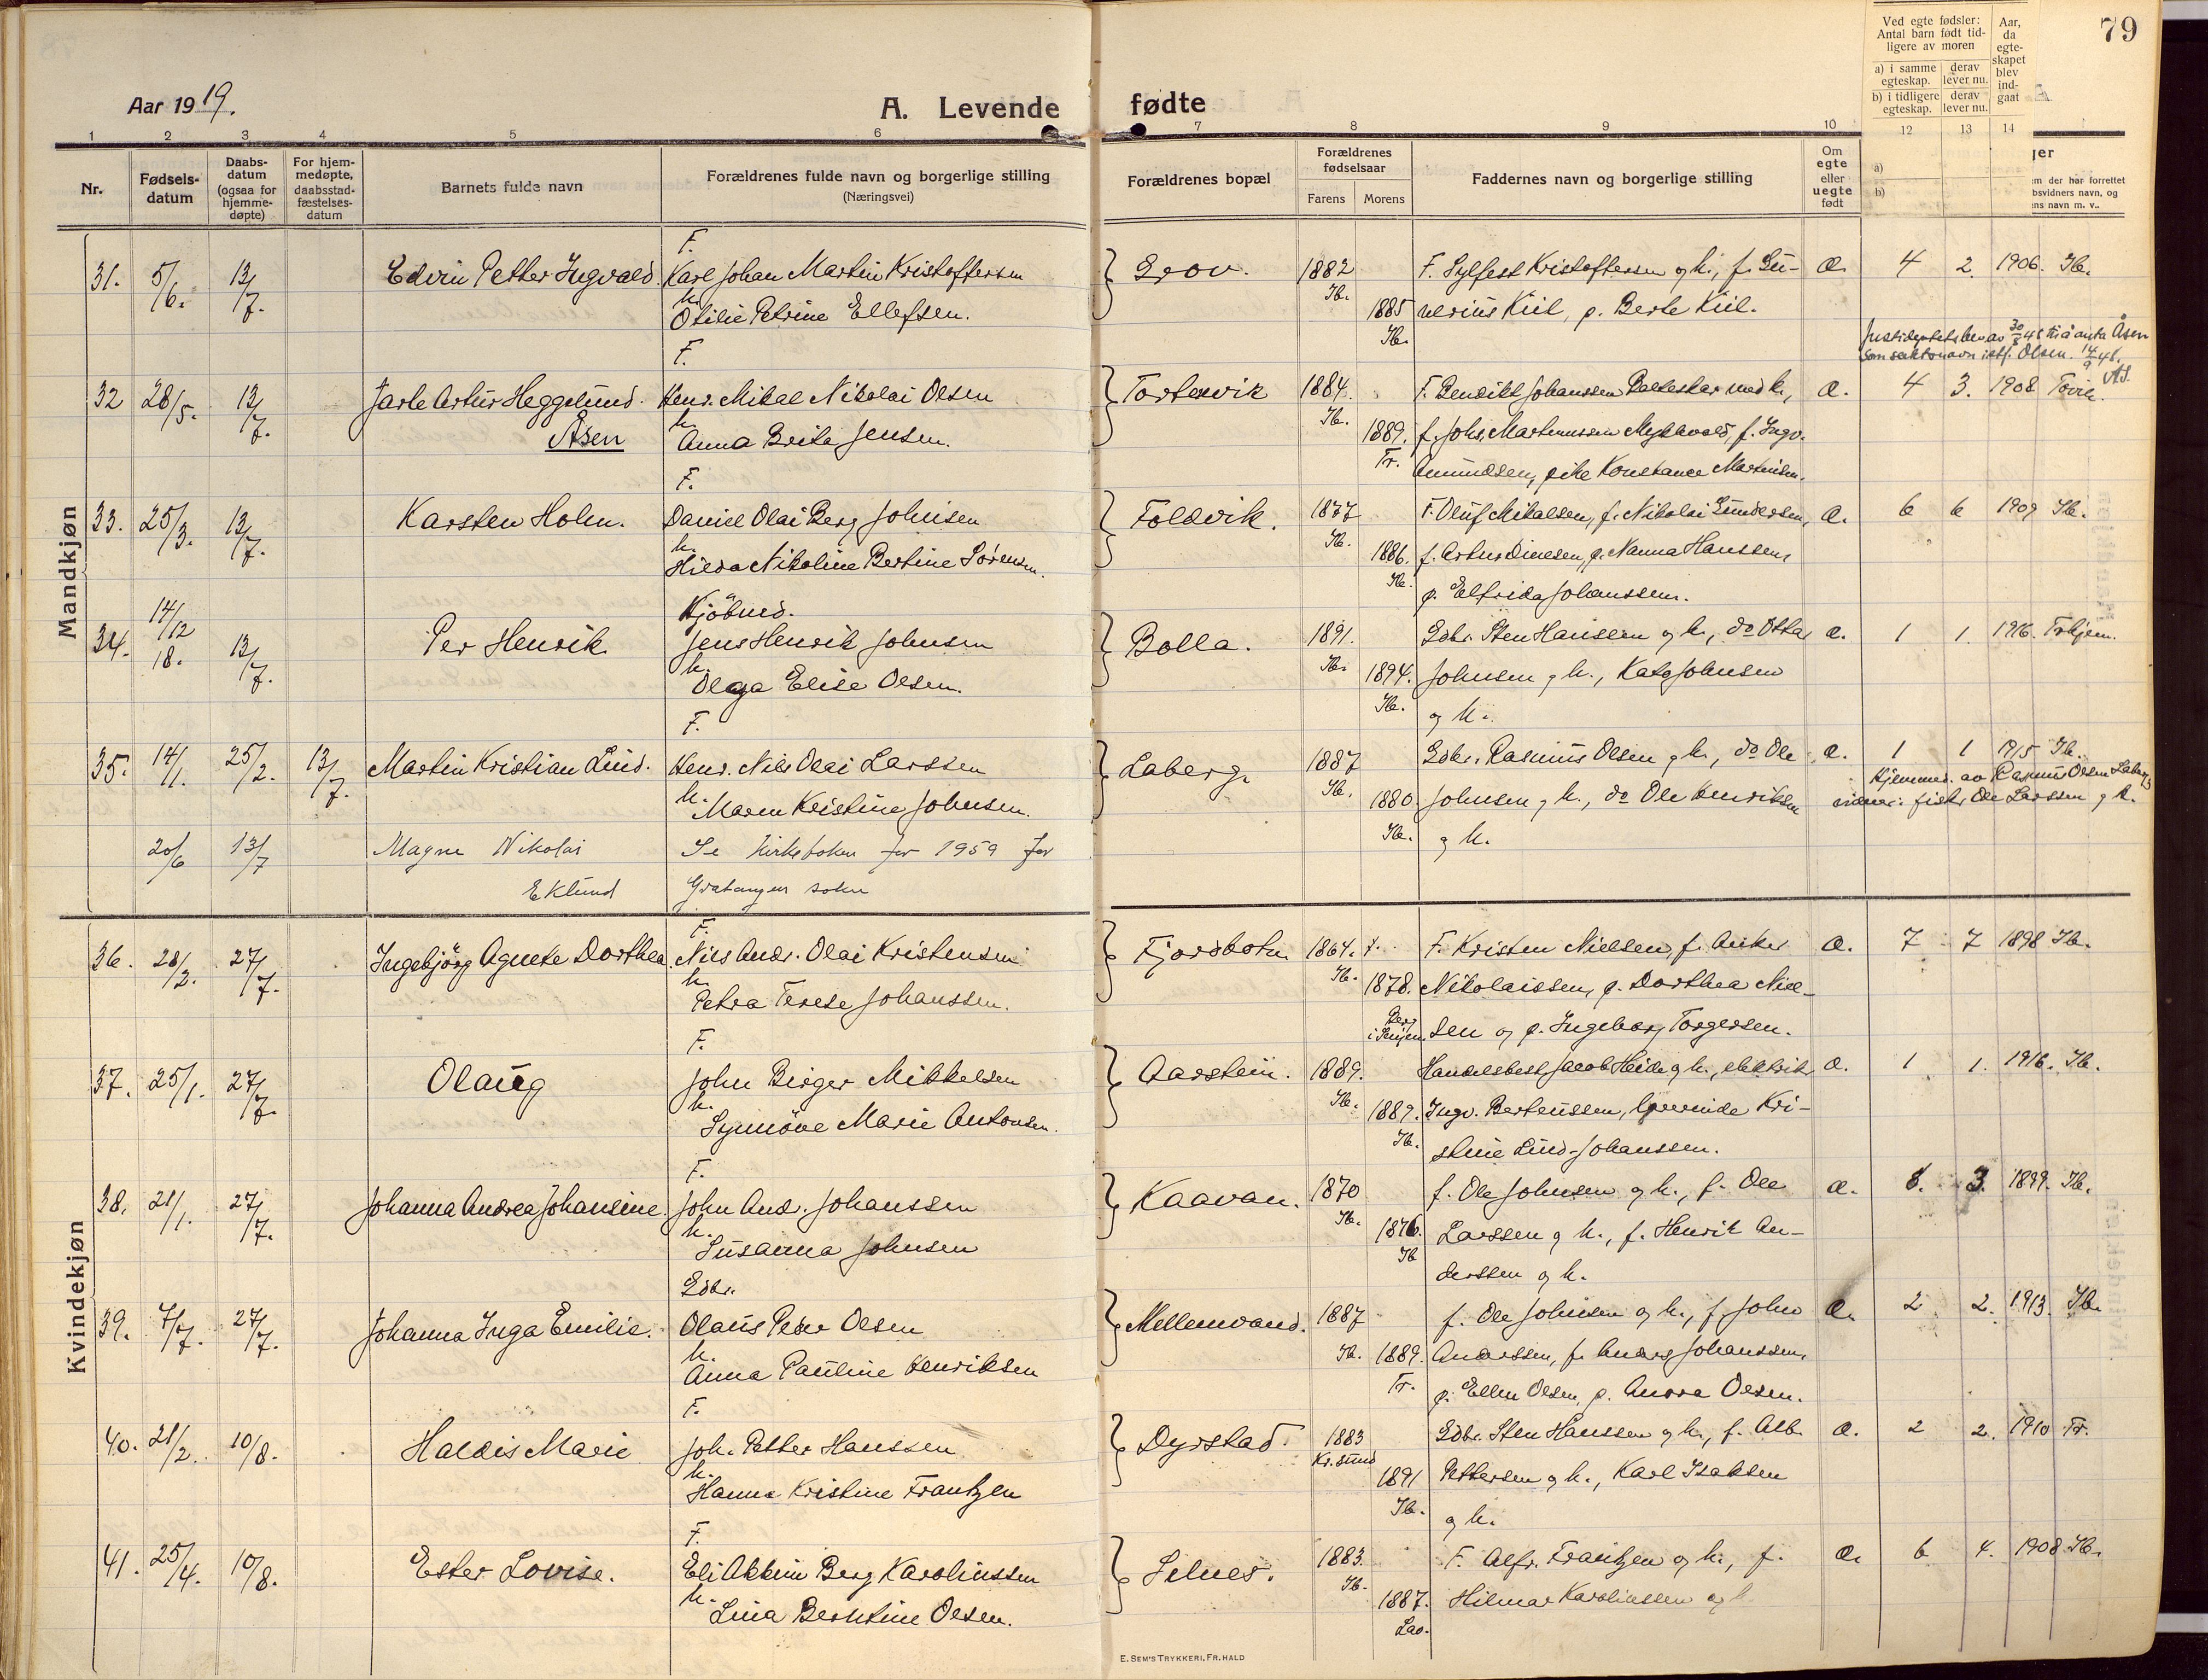 79
Aar 1919.
A. Levende fødte
Ved egte fødsler: Antal barn født tidligere av moren
Aar, da egteskapet blev indgaat
a) i samme egteskap.
derav lever nu.
b) i tidligere egteskap.
derav lever nu.
1 2 3 4 5 6 7 8 9 10 12 13 14
Nr.
Fødselsdatum
Daabsdatum (ogsaa for hjemmedøpte)
For hjemmedøpte, daabsstadfæstelsesdatum
Barnets fulde navn
Forældrenes fulde navn og borgerlige stilling
(Næringsvei)
Forældrenes bopæl
Forældrenes fødselsaar
Farens Morens
Faddernes navn og borgerlige stilling
Om egte eller uegte født
a)
b)
Mandkjøn
F.
31. 5/6. 13/7. Edvin Petter Ingvald. Karl Johan Martin Kristoffersen Grov. 1882 F. Sylfest Kristoffersen og h., f. Gu- æ. 4 2. 1906. Ib.
h. Otilie Petrine Ellefsen. Ib. 1885 nerius Kiil, p. Berte Kiil.
Ib.
F.
som slektsnavn istf. Olsen. 14/9 41.
32 28/5. 13/7. Jarle Artur Heggelund. Henr. Mikal Nikolai Olsen 1884. F. Bendikt Johanssen med h., æ. 4 3. 1908
Åsen h. Anna Brita Jensen. Ib. 1889. f. Johs. Martenussen f. Ingv.
Tr. Amundsen, pike Konstance Martinsen.
F.
33. 25/3. 13/7. Karsten Holm. Daniel Olai Berg Johnsen Foldvik. 1877 F. Oluf Mikalsen, f. Nikolai Gundersen, æ. 6 6 1909 Ib.
h. Hilda Nikoline Bertine Sørensen. Ib. 1886. f. Artur Dinesen, p. Nanna Hanssen,
Ib. p. Elfrida Johanssen.
Kjøbmd.
34. 14/12 18. 13/7. Per Henrik. Jens Henrik Johnsen Bolla. 1891. Gdbr. Sten Hansen og h., do Ottar æ. 1 1. 1916. Trhjem.
h. Olga Elise Olsen. Ib. 1894. Johnsen og h., Kato Johnsen
Ib. og h.
F.
35. 14/1. 25/2. 13/7. Martin Kristian Lind. Henr. Nils Olai Larssen Laberg. 1887 Gdbr. Rasmus Olsen og h., do Ole æ. 1 1 1915 Ib.
Hjemmed. av Rasmus Olsen Laberg
h. Maren Kristine Johnsen. Ib. 1880. Johnsen og h., do Ole Henriksen
fisk. Ole Larssen og h.
Ib. og h.
20/6 13/7 Magne Nikolai Se kirkeboken for 1959 for
Eklund Gratangen sokn
Kvindekjøn
F.
36. 28/2. 27/7. Ingebjörg Agnete Dorthea. Nils Andr. Olai Kristensen Fjordbotn 1864. F. Kristen Nielsen, f. Anker æ. 7 7 1898 Ib.
h. Petra Terese Johanssen. Ib. 1878. Nikolaissen, p. Dorthea Niel-
Berg i Senjen. sen og p. Ingeborg Torgersen.
F.
37. 25/1. 27/7. Olaug John Birger Mikkelsen Aarstein. 1889. Handelsbest. Jacob Heide og h., elektrik. æ. 1 1. 1916. Ib.
h. Synnöve Marie Antonsen. Ib. 1889. Ingv. Berteussen, lærerinde Kri-
Ib. stine Lind-Johanssen.
F.
38. 21/1. 27/7. Johanna Andrea Johansine. John And. Johanssen Kaavan. 1870 f. Ole Johnsen og h., f. Ole æ. 8. 3. 1899. Ib.
h. Susanna Johnsen Ib. 1876. Larssen og h., f. Henrik An-
Ib derssen og h.
Gdbr.
39. 7/7. 27/7. Johanna Inga Emilie. Olaus Peder Olsen Mellemvand. 1887 f. Ole Johnsen og h., f. John æ. 2 2. 1913. Ib.
h. Anna Pauline Henriksen Ib. 1889. Anderssen, f. Anders Johanssen,
Tr. p. Ellen Olsen, p. Andrea Olsen.
F.
40. 21/2. 10/8. Haldis Marie Joh. Petter Hanssen Dyrstad. 1883 Gdbr. Sten Hanssen og h., f. Alb. æ. 2 2. 1910 Tr.
Kr.sund
h. Hanna Kristine Frantzen 1891 Pettersen og h., Karl Isaksen
Ib. og h.
F.
41. 25/4. 10/8. Ester Lovise. Eli Akkim Berg Karolinssen Selnes. 1883. F. Alfr. Frantzen og h., f. æ. 6 4. 1908 Ib.
h. Lina Berntine Olsen. Ib. 1887. Hilmar Karolinssen og h.
Lav.
E. SEM'S TRYKKERI, FR. HALD